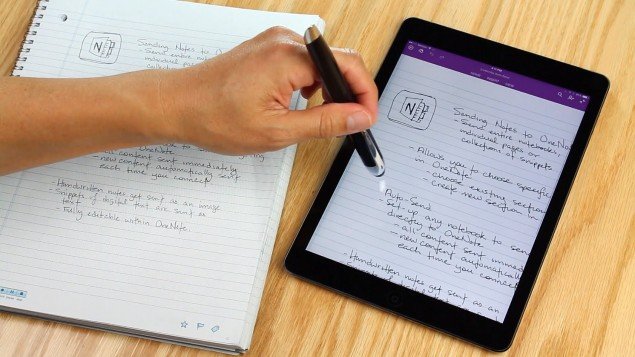 N
Sending Notes to O
- Send entire
individual pages
collections of
- all content sent immediately
- new content automatically sent
each time you connect
- Handwritten notes get sent as an image
- Snippets of digital text are sent as
text
- Fully editable within OneNote.
N
Sending Notes to OneNote
- Send entire notebooks,
individual pages or
collections of snippets
- Allows you to choose specific
in OneNote
- choose existing section
- create new section in
- Auto-Send
- Set-up any notebook to send
directly to OneNote
- all content sent immed
- new content automatically
each time you connect
- Handwritten notes get sent as an